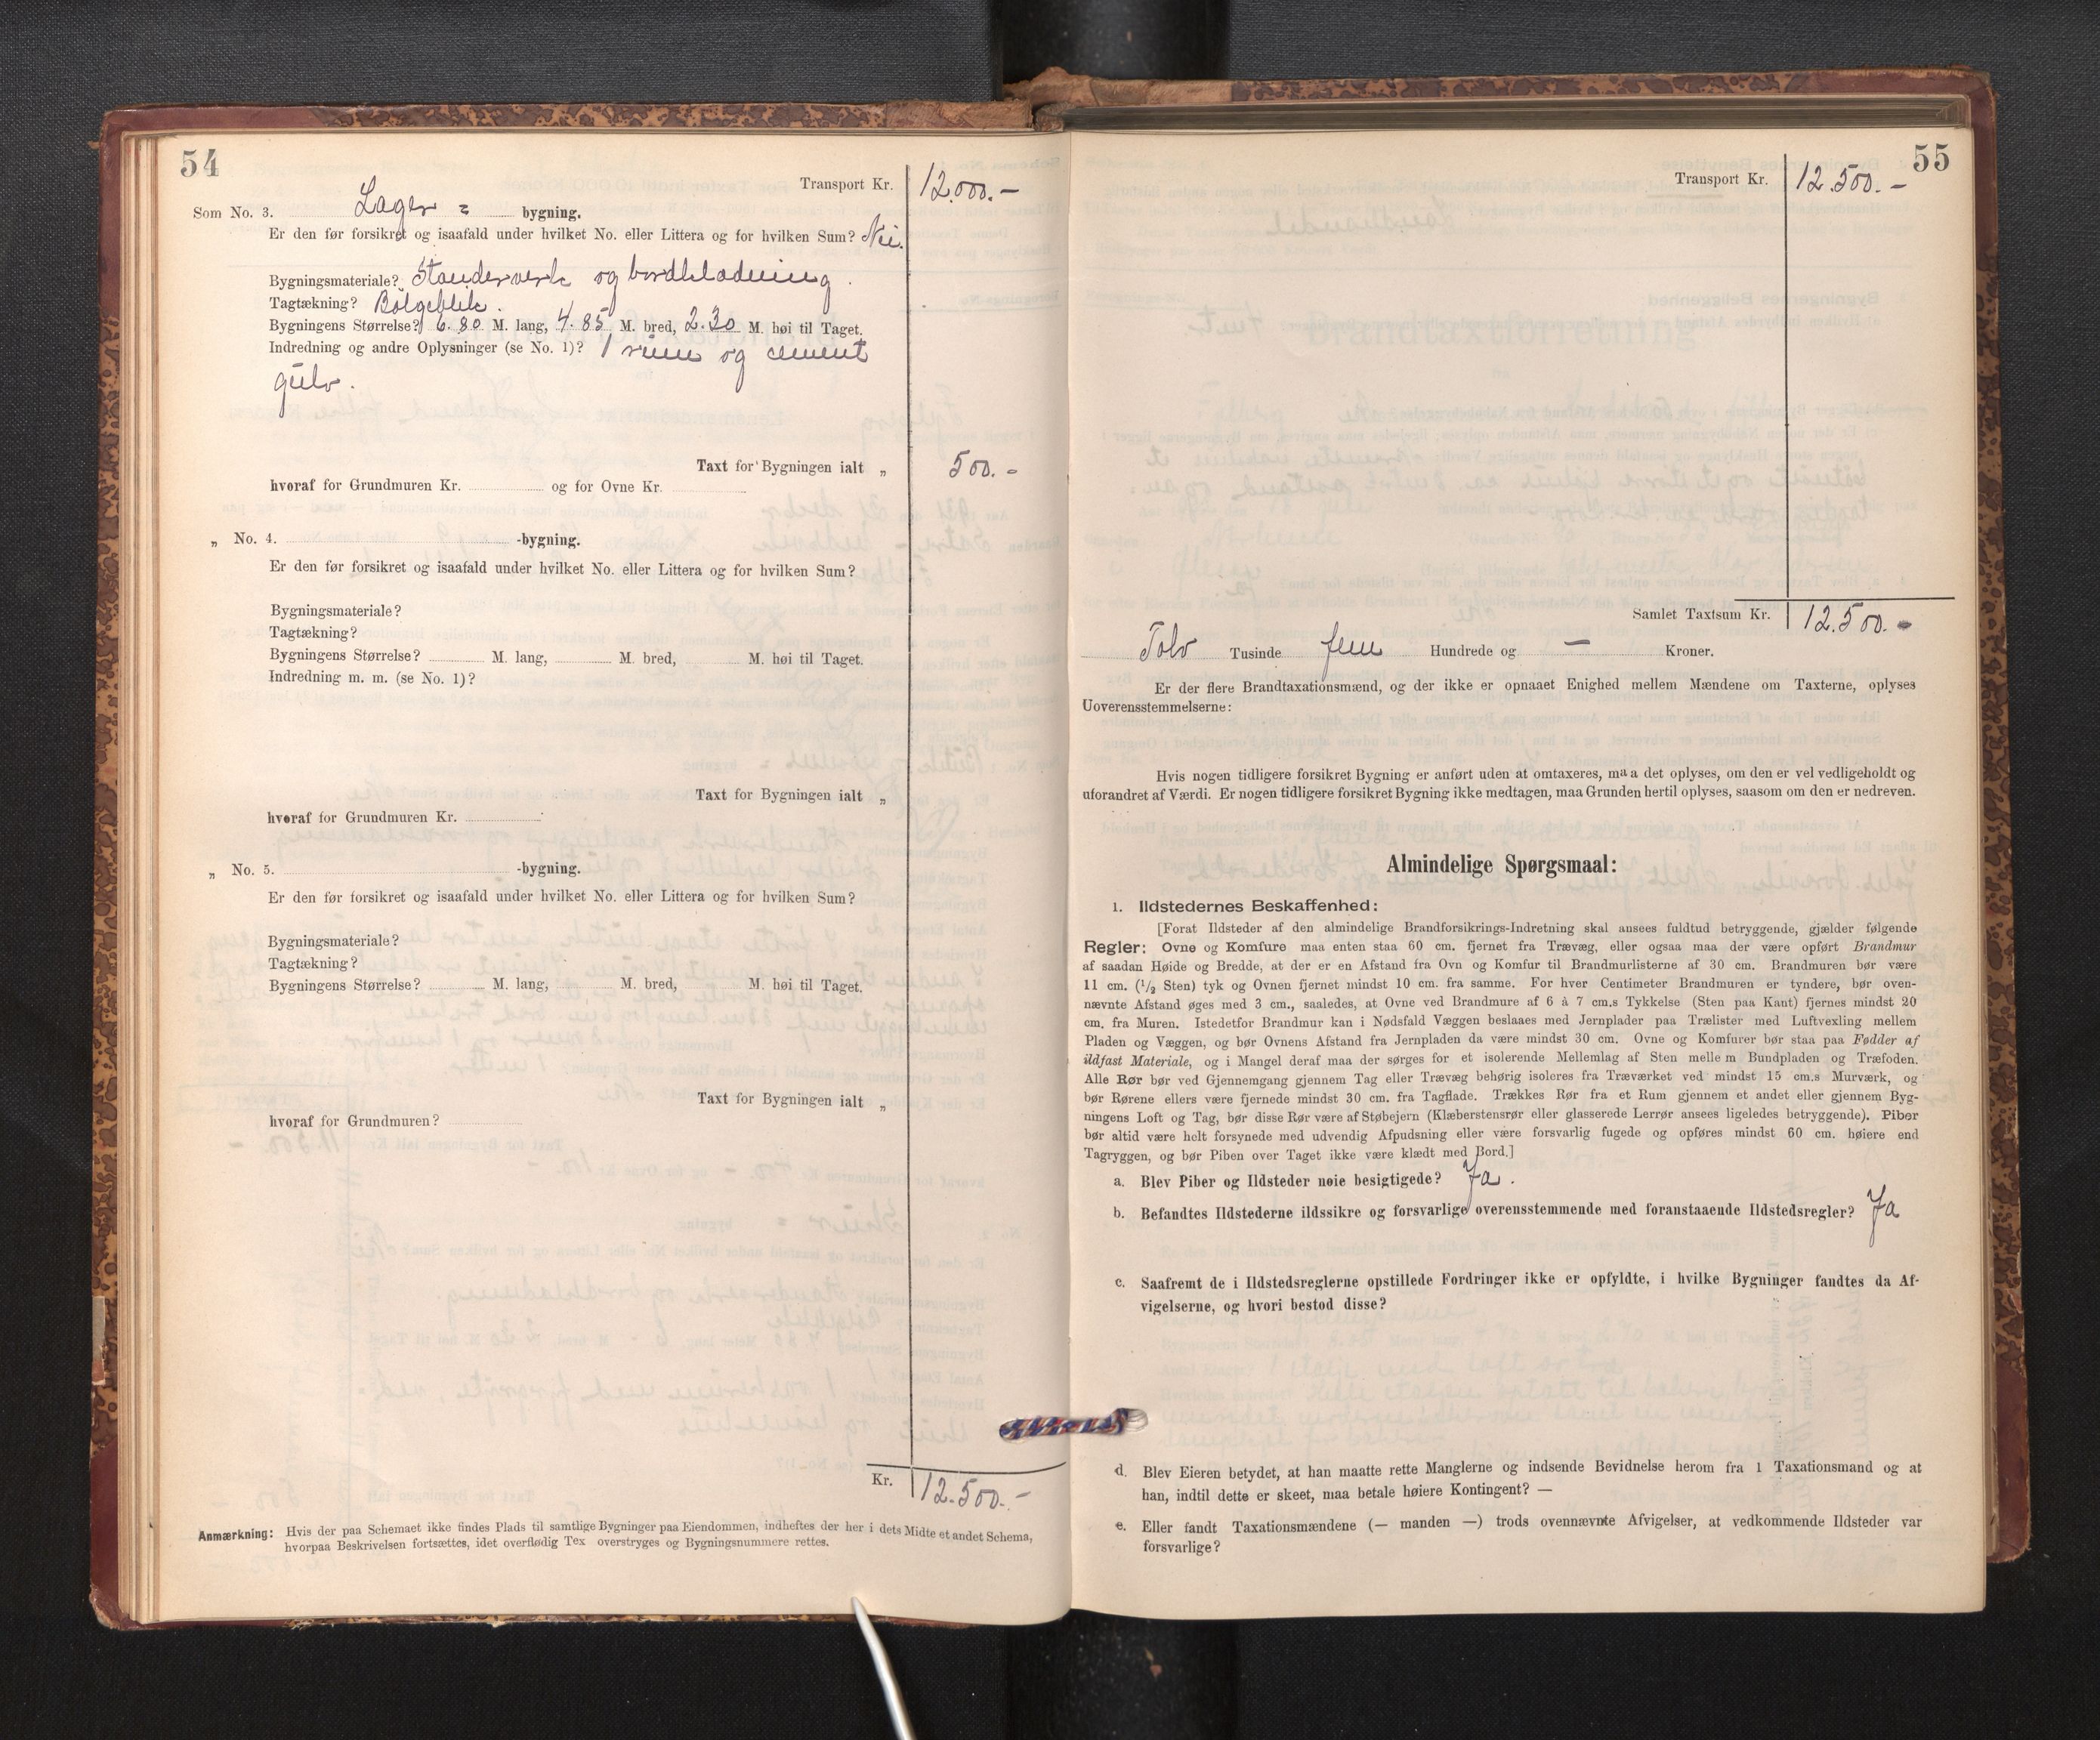 54
Transport Kr. 12.000.-
Som No. 3. Lager = bygning.
Er den før forsikret og isaafald under hvilket No. eller Littera og for hvilken Sum? Nei.
Bygningsmateriale? Standerverk og bordklædning.
Tagtækning? Bølgeblik.
Bygningens Størrelse? 6.80 M. lang, 4.85 M. bred, 2.30 M. høi til Taget.
Indredning og andre Oplysninger (se No. 1)? 1 rum og cement
gulv.
Taxt for Bygningen ialt „ 500.-
hvoraf for Grundmuren Kr. og for Ovne Kr.
„ No. 4. -bygning.
Er den før forsikret og isaafald under hvilket No. eller Littera og for hvilken Sum?
Bygningsmateriale?
Tagtækning?
Bygningens Størrelse? M. lang, M. bred, M. høi til Taget.
Indredning m. m. (se No. 1)?
Taxt for Bygningen ialt „
hvoraf for Grundmuren Kr.
„ No. 5. -bygning.
Er den før forsikret og isaafald under hvilket No. eller Littera og for hvilken Sum?
Bygningsmateriale?
Tagtækning?
Bygningens Størrelse? M. lang, M. bred, M. høi til Taget.
Taxt for Bygningen ialt „
hvoraf for Grundmuren?
Kr. 12.500.-
Anmærkning: Hvis der paa Schemaet ikke findes Plads til samtlige Bygninger paa Eiendommen, indheftes der her i dets Midte et andet Schema,
hvorpaa Beskrivelsen fortsættes, idet overflødig Tex overstryges og Bygningsnummere rettes.
55
Transport Kr. 12.500.-
Samlet Taxtsum Kr. 12.500.-
Tolv Tusinde fem Hundrede og — Kroner.
Er der flere Brandtaxationsmænd, og der ikke er opnaaet Enighed mellem Mændene om Taxterne, oplyses
Uoverensstemmelserne:
Hvis nogen tidligere forsikret Bygning er anført uden at omtaxeres, maa det oplyses, om den er vel vedligeholdt og
uforandret af Værdi. Er nogen tidligere forsikret Bygning ikke medtagen, maa Grunden hertil oplyses, saasom om den er nedreven.
Almindelige Spørgsmaal:
1. Ildstedernes Beskaffenhed:
[Forat Ildsteder af den almindelige Brandforsikrings-Indretning skal ansees fuldtud betryggende, gjælder følgende
Regler: Ovne og Komfure maa enten staa 60 cm. fjernet fra Trævæg, eller ogsaa maa der være opført Brandmur
af saadan Høide og Bredde, at der er en Afstand fra Ovn og Komfur til Brandmurlisterne af 30 cm. Brandmuren bør være
11 cm. (1/2 Sten) tyk og Ovnen fjernet mindst 10 cm. fra samme. For hver Centimeter Brandmuren er tyndere, bør oven-
nævnte Afstand øges med 3 cm., saaledes, at Ovne ved Brandmure af 6 à 7 cm.s Tykkelse (Sten paa Kant) fjernes mindst 20
cm. fra Muren. Istedetfor Brandmur kan i Nødsfald Væggen beslaaes med Jernplader paa Trælister med Luftvexling mellem
Pladen og Væggen, og bør Ovnens Afstand fra Jernpladen da være mindst 30 cm. Ovne og Komfurer bør staa paa Fødder af
ildfast Materiale, og i Mangel deraf maa der sørges for et isolerende Mellemlag af Sten mellem Bundpladen og Træfoden.
Alle Rør bør ved Gjennemgang gjennem Tag eller Trævæg behørig isoleres fra Træværket ved mindst 15 cm.s Murværk, og
bør Rørene ellers være fjernede mindst 30 cm. fra Tagflade. Trækkes Rør fra et Rum gjennem et andet eller gjennem Byg-
ningens Loft og Tag, bør disse Rør være af Støbejern (Klæberstensrør eller glasserede Lerrør ansees ligeledes betryggende). Piber
bør altid være helt forsynede med udvendig Afpudsning eller være forsvarlig fugede og opføres mindst 60 cm. høiere end
Tagryggen, og bør Piben over Taget ikke være klædt med Bord.]
a. Blev Piber og Ildsteder nøie besigtigede? Ja.
b. Befandtes Ildstederne ildssikre og forsvarlige overensstemmende med foranstaaende Ildstedsregler? Ja
c. Saafremt de i Ildstedsreglerne opstillede Fordringer ikke er opfyldte, i hvilke Bygninger fandtes da Af-
vigelserne, og hvori bestod disse?
d. Blev Eieren betydet, at han maatte rette Manglerne og indsende Bevidnelse herom fra 1 Taxationsmand og at
han, indtil dette er skeet, maa betale høiere Kontingent? —
e. Eller fandt Taxationsmændene (— manden —) trods ovennævnte Afvigelser, at vedkommende Ildsteder var
forsvarlige?